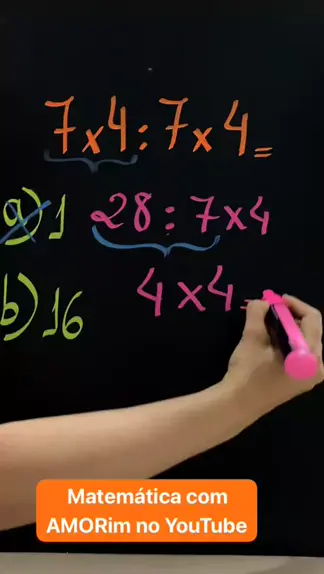 7x4:7x4=
a) 1 28:7x4
b) 16 4x4=
Matemática com
AMORim no YouTube